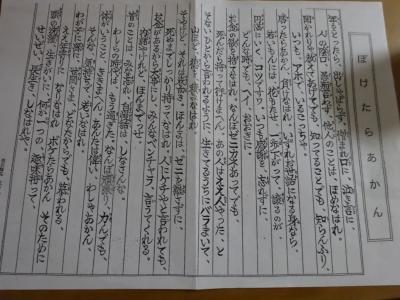 ぼけたらあかん
年をとったら、出しゃばらず、憎まれ口に、泣き言に
人のかげ口、愚痴言わず、他人のことは、ほめなはれ。
聞かれりゃ教えてあげてでも、知ってることでも、知らんふり、
いつも、アホで、いるこっちゃ。
勝ったらあかん、負けなはれ、いずれお世話になる身なら、
若いもんには、花もたせ、一歩下がって、譲るのが
円満にいく、コツですわ。いつも感謝を、忘れずに、
どんな時でも、ヘイ、おおきに。
お金の欲を、捨てなはれ。なんぼゼニカネあってでも、
死んだら持って行けまへん。あの人はええ人やった、と
そないに人から言われるように、生きてるうちにバラまいて、
山ほど徳を積みなはれ。
そやけどそれは、表向き。ほんまは、ゼニを離さずに、
死ぬまでしっかり、持ってなはれ。人にケチやと言われても、
お金があるから大事にし、みんなベンチャラ、言うてくれる。
内緒やけれど、ほんまでっせ。
昔のことは、みな忘れ、自慢話は、しなさんな。
わしらの時代は、もう過ぎた。なんぼ頑張り、力んでも、
体がいうこと、ききまへん。あんたは偉い、わしゃあかん、
そんな気持ちで、おりなはれ。
わが子に孫に、世間さま、どなたからでも、慕われる、
ええ年寄りに、なりなはれ。ボケたらあかん、そのために
頭の洗濯、生きがいに、何か一つの、趣味持って、
せいぜい、長生き、しなはれや。